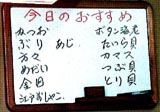 今日のおすすめ
かつお
ぶり あじ
方々
めだい
金目
江戸前しゃこ
ボタン海老
たいら貝
カマス
つぶ貝
とり貝